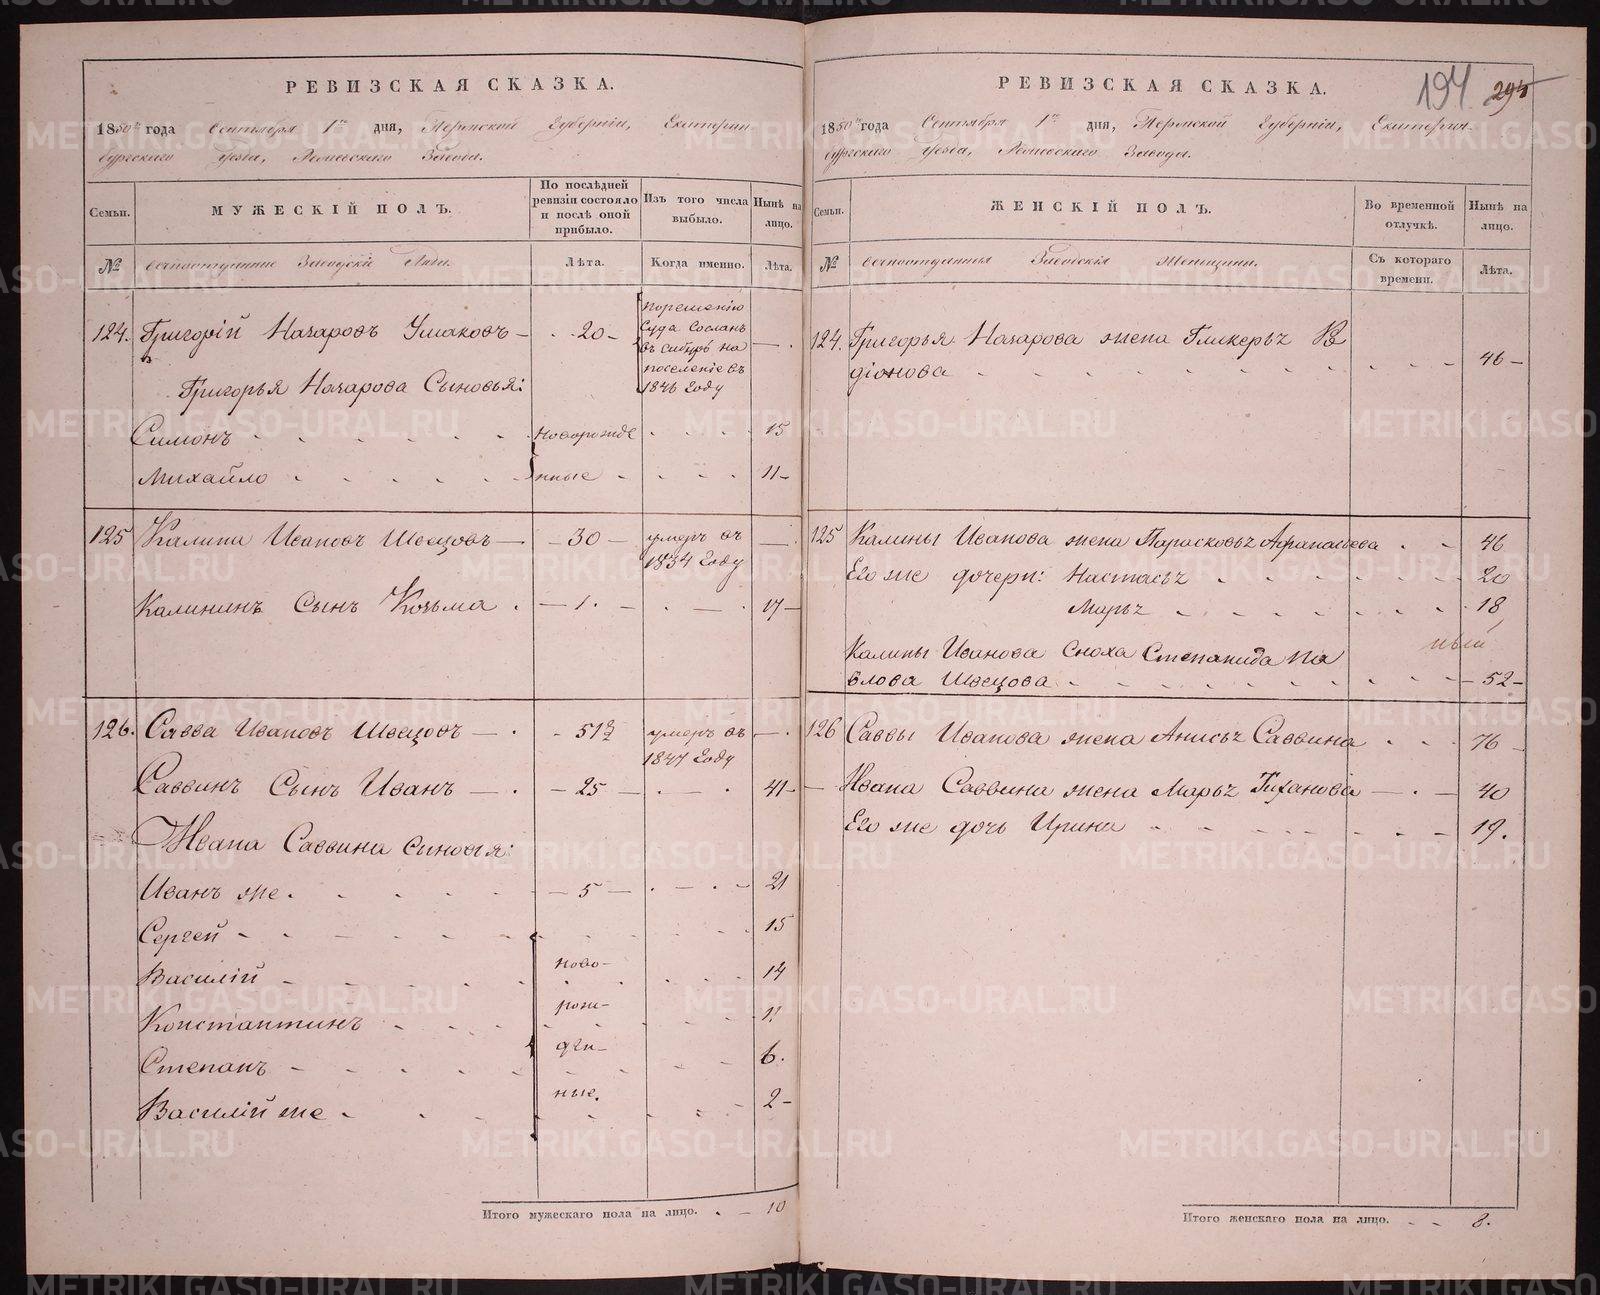 РЕВИЗСКАЯ СКАЗКА.
1850 года Сентября 1го дня, Пермской Губерніи, Екатерин-
бургскаго Уезда, Завода.
Семьи.
МУЖЕСКІЙ ПОЛЪ.
По послѣдней ревизіи состояло и послѣ оной прибыло.
Изъ того числа выбыло.
Нынѣ на лицо.
№
вечноотданные Заводскіе Люди.
Лѣта.
Когда именно.
Лѣта.
124. Григорій Назаровъ Ушаковъ — 20 —
порешенію
Суда Сосланъ
въ сибирь на
поселеніе въ
1846 Году
Григорья Назарова Сыновья:
Симонъ новорожде 15
Михайло нные 11
125 Калина Ивановъ Швецовъ — 30 — умеръ въ
1834 Году
Калининъ Сынъ Козьма — 1 — 17
126. Савва Ивановъ Швецовъ — 51½ умеръ въ
1847 Году
Саввинъ Сынъ Иванъ — 25 — 41
Ивана Саввина сыновья:
Иванъ же — 5 — 21
Сергей 15
Василій ново- 14
Константинъ рож- 11
Степанъ ден- 6.
Василій же ные. 2
Итого мужескаго пола на лицо. 10
194 295
РЕВИЗСКАЯ СКАЗКА.
1850 года Сентября 1го дня, Пермской Губерніи, Екатерин-
бургскаго Уезда, Завода.
Семьи.
ЖЕНСКІЙ ПОЛЪ.
Во временной отлучкѣ.
Нынѣ на лицо.
№
вечноотданныя Заводскія Женщины.
Съ котораго времени.
Лѣта.
124. Григорья Назарова жена Гликерья
діонова 46
125 Калины Иванова жена Парасковья Афанасьева 46
Его же дочери: Настасья 20
Марья 18
Калины Иванова Сноха Степанида Па
влова Швецова 52
126 Саввы Иванова жена Анисья Саввина 76
Ивана Саввина жена Марья Тиханова 40
Его же дочь Ирина 19.
Итого женскаго пола на лицо. 8.
METRIKI.GASO-URAL.RU